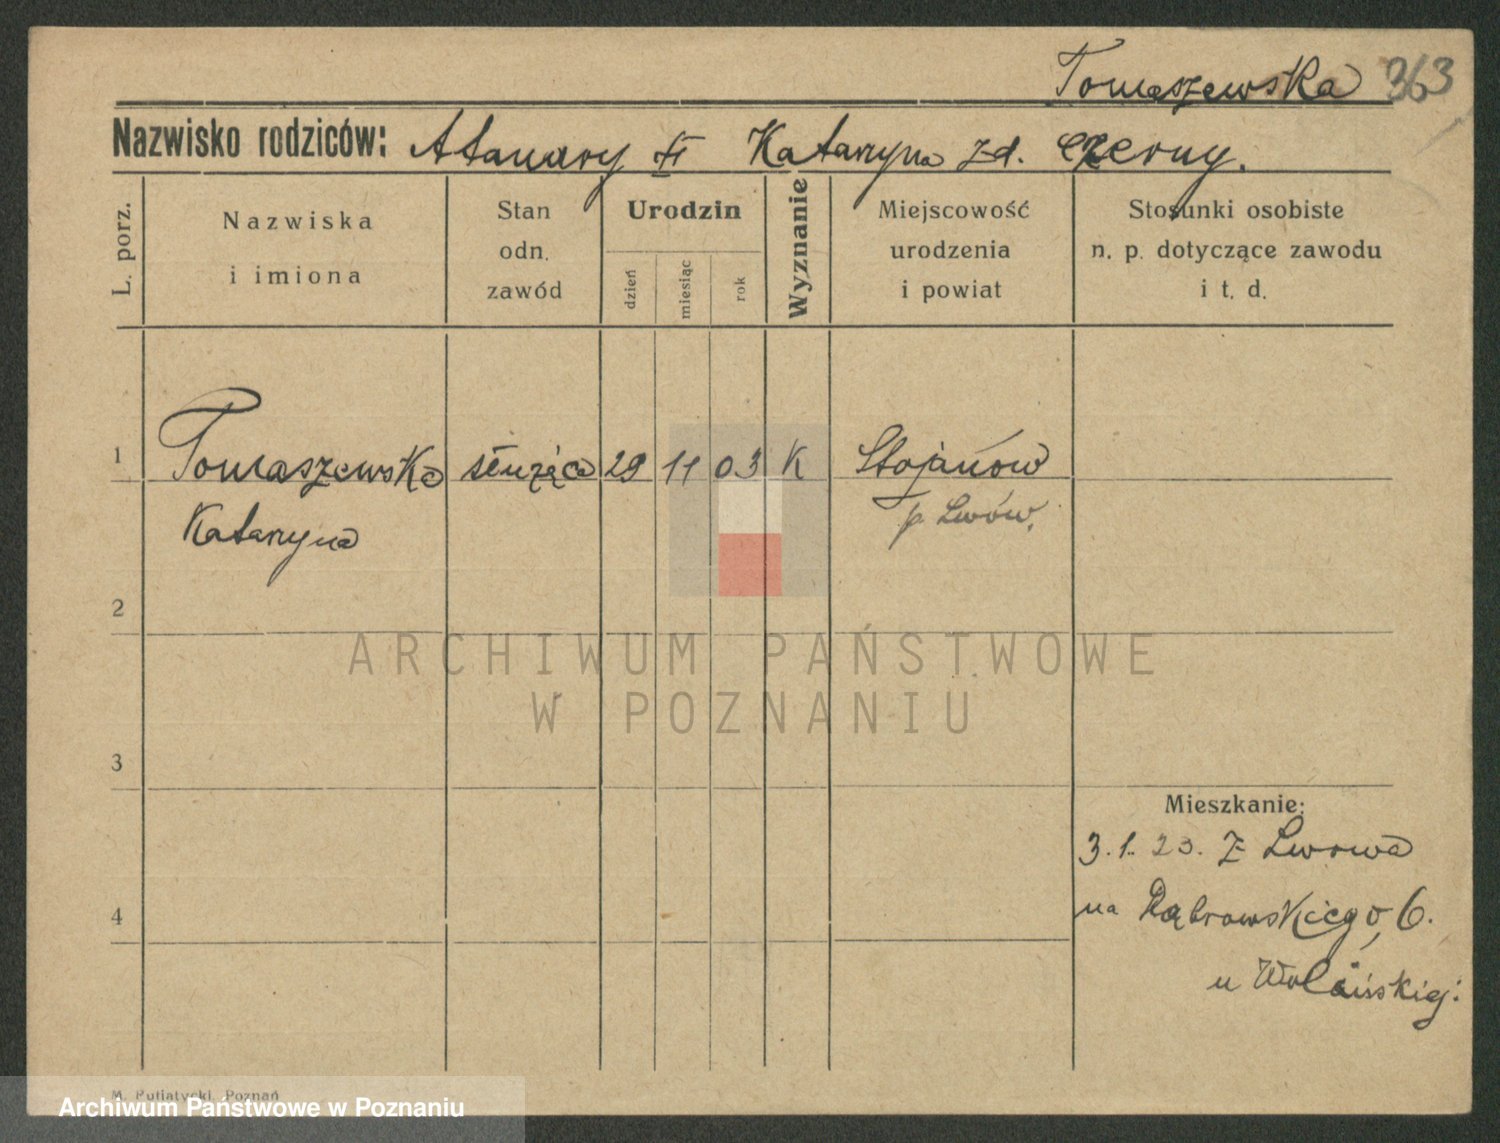 Tomaszewska 363
Nazwisko rodziców: Katarzyna zd. Czerny.
L. porz.
Nazwiska
i imiona
Stan
odn.
zawód
Urodzin
dzień
miesiąc
rok
Wyznanie
Miejscowość
urodzenia
i powiat
Stosunki osobiste
n. p. dotyczące zawodu
i t. d.
1 Tomaszewska służąca 29 11 03 K Stojanów
Katarzyna p. Lwów.
2
ARCHIWUM PAŃSTWOWE
W POZNANIU
3
Mieszkanie:
3.1.23. z Lwowa
4 na Dąbrowskiego 6.
u Wolańskiej.
M. Putiatycki, Poznań
Archiwum Państwowe w Poznaniu